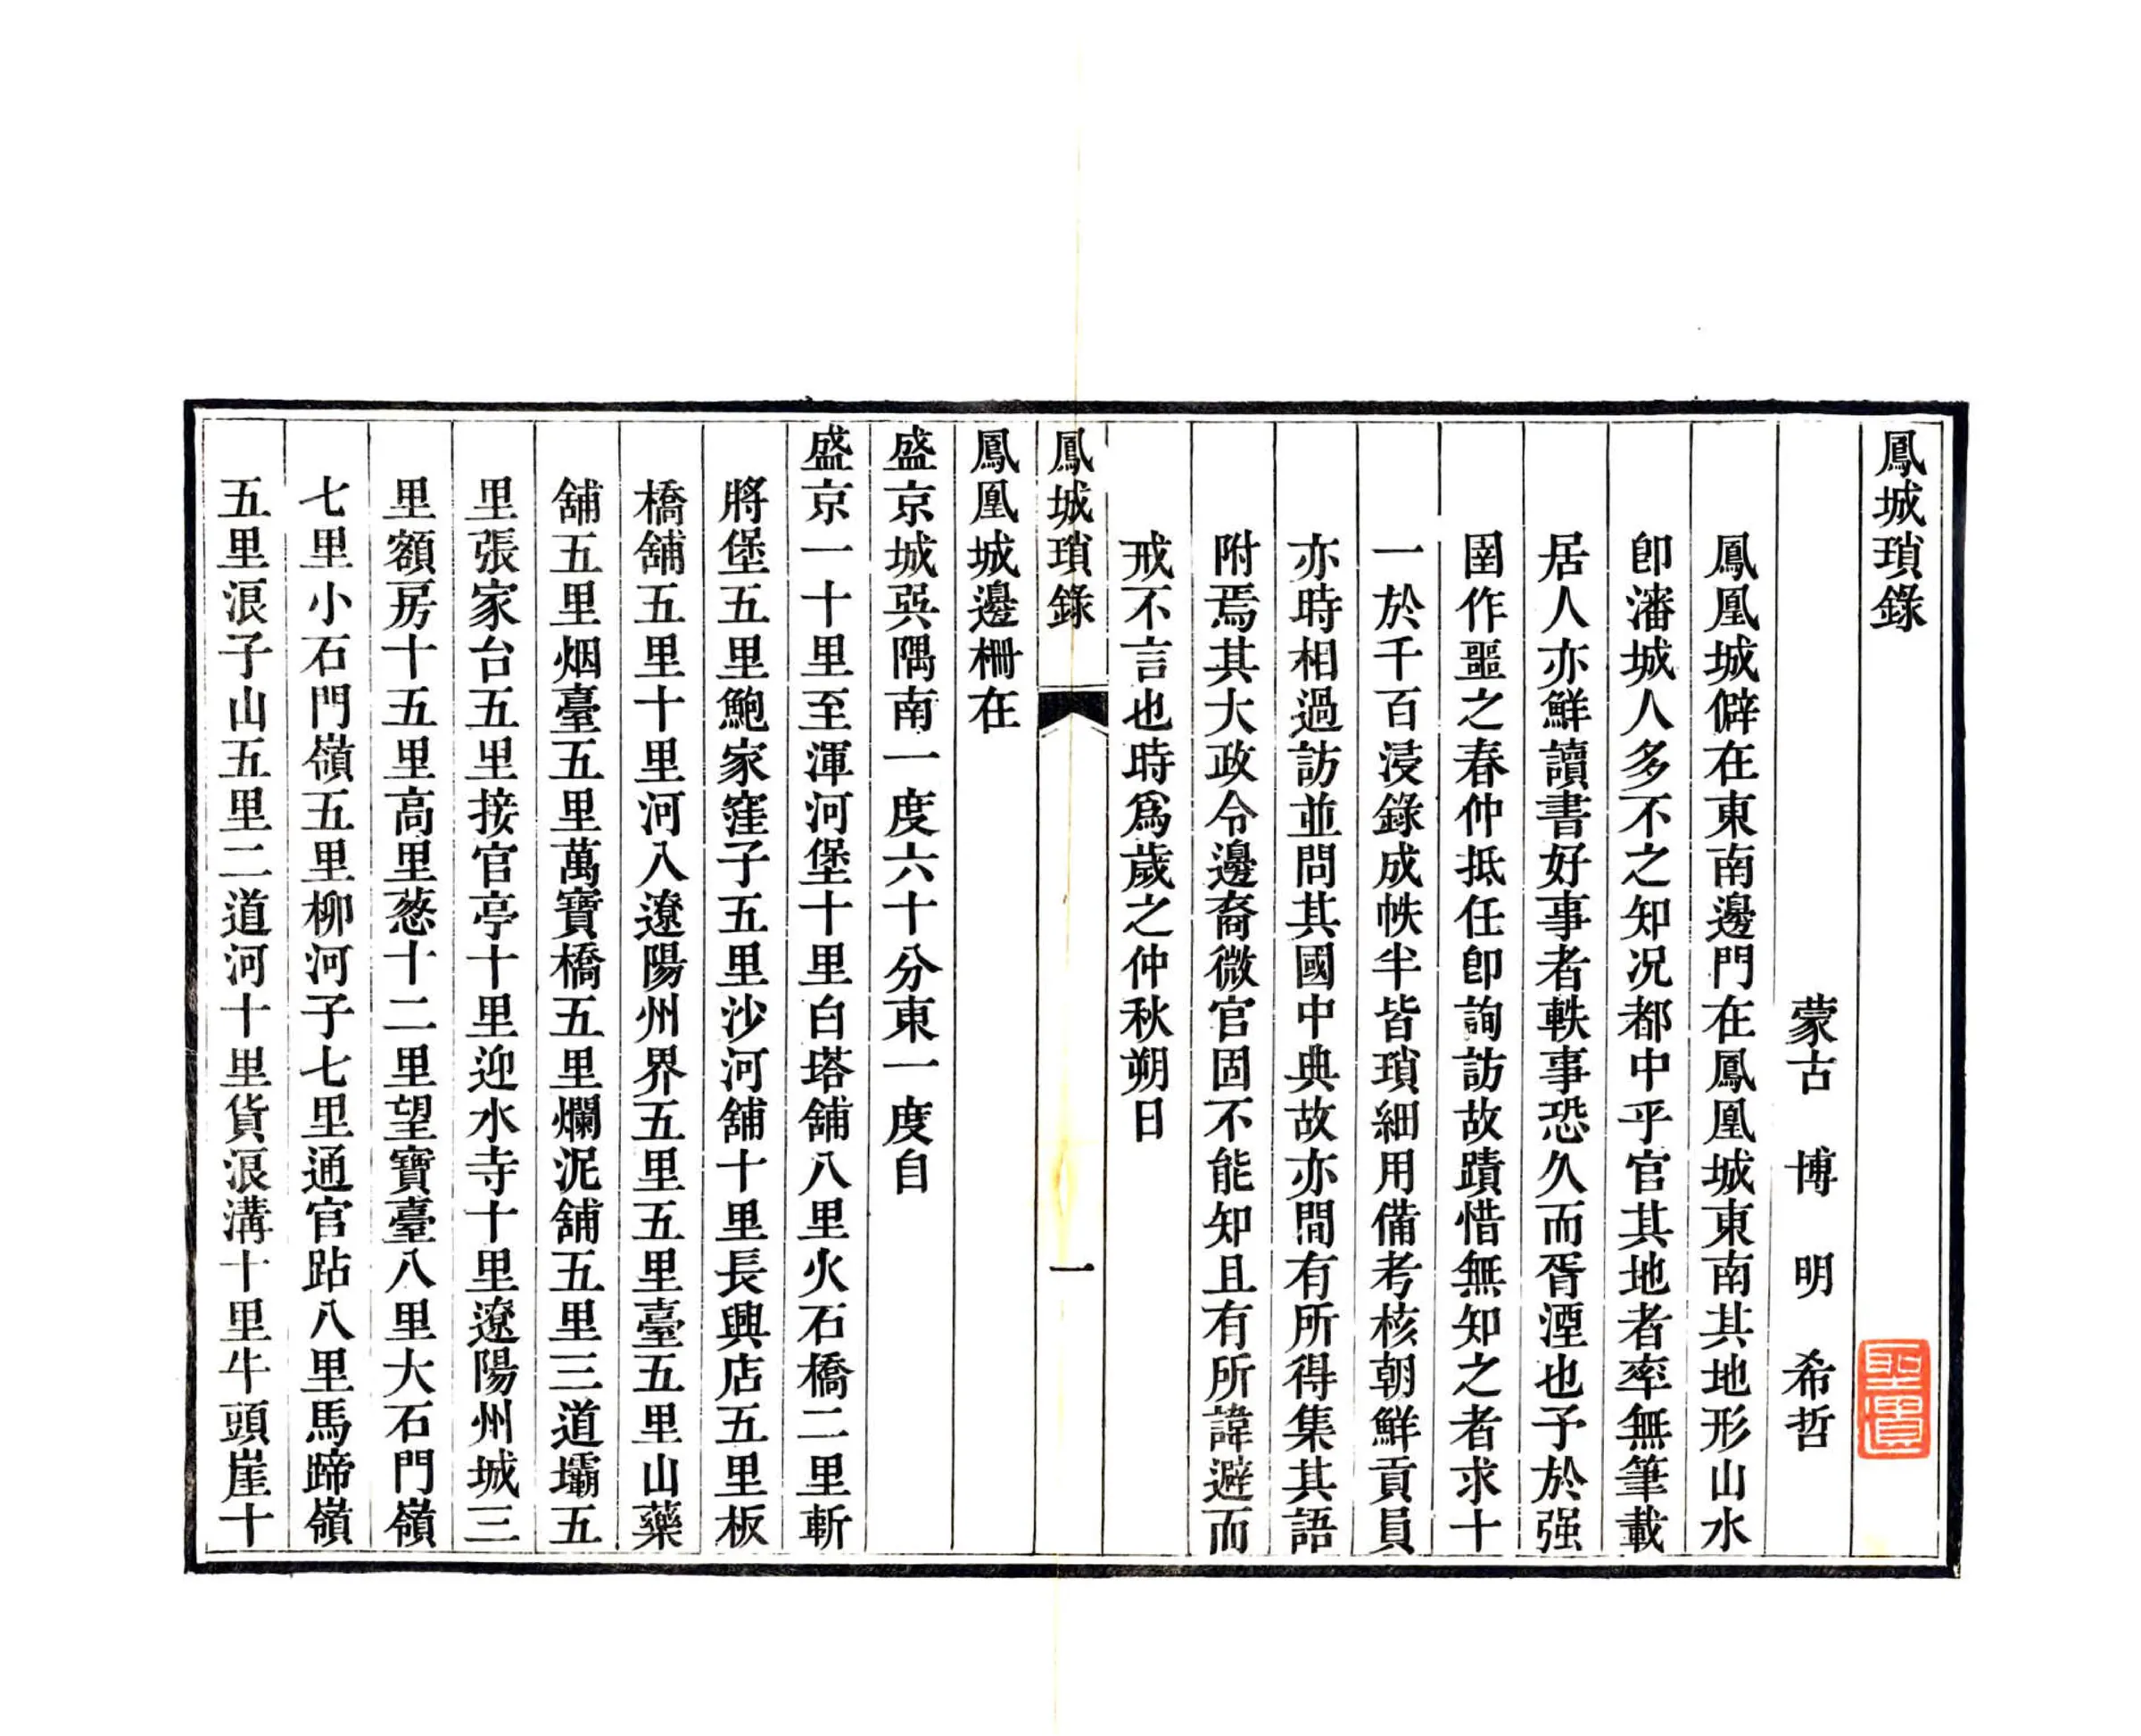 鳳城瑣錄
蒙古 博 明 希哲
鳳凰城僻在東南邊門在鳳凰城東南其地形山水
卽瀋城人多不之知况都中乎官其地者率無筆載
居人亦鮮讀書好事者軼事恐久而胥湮也予於强
圉作噩之春仲抵任卽詢訪故蹟惜無知之者求十
一於千百浸錄成帙半皆瑣細用備考核朝鮮貢員
亦時相過訪並問其國中典故亦間有所得集其語
附焉其大政令邊裔微官固不能知且有所諱避而
戒不言也時爲歲之仲秋朔日
鳳城瑣錄 一
鳳凰城邊柵在
盛京城巽隅南一度六十分東一度自
盛京一十里至渾河堡十里白塔舖八里火石橋二里斬
將堡五里鮑家窪子五里沙河舖十里長興店五里板
橋舖五里十里河八遼陽州界五里五里臺五里山藥
舖五里烟臺五里萬寶橋五里爛泥舖五里三道壩五
里張家台五里接官亭十里迎水寺十里遼陽州城三
里額房十五里高里葱十二里望寶臺八里大石門嶺
七里小石門嶺五里柳河子七里通官跕八里馬蹄嶺
五里浪子山五里二道河十里貨浪溝十里牛頭崖十